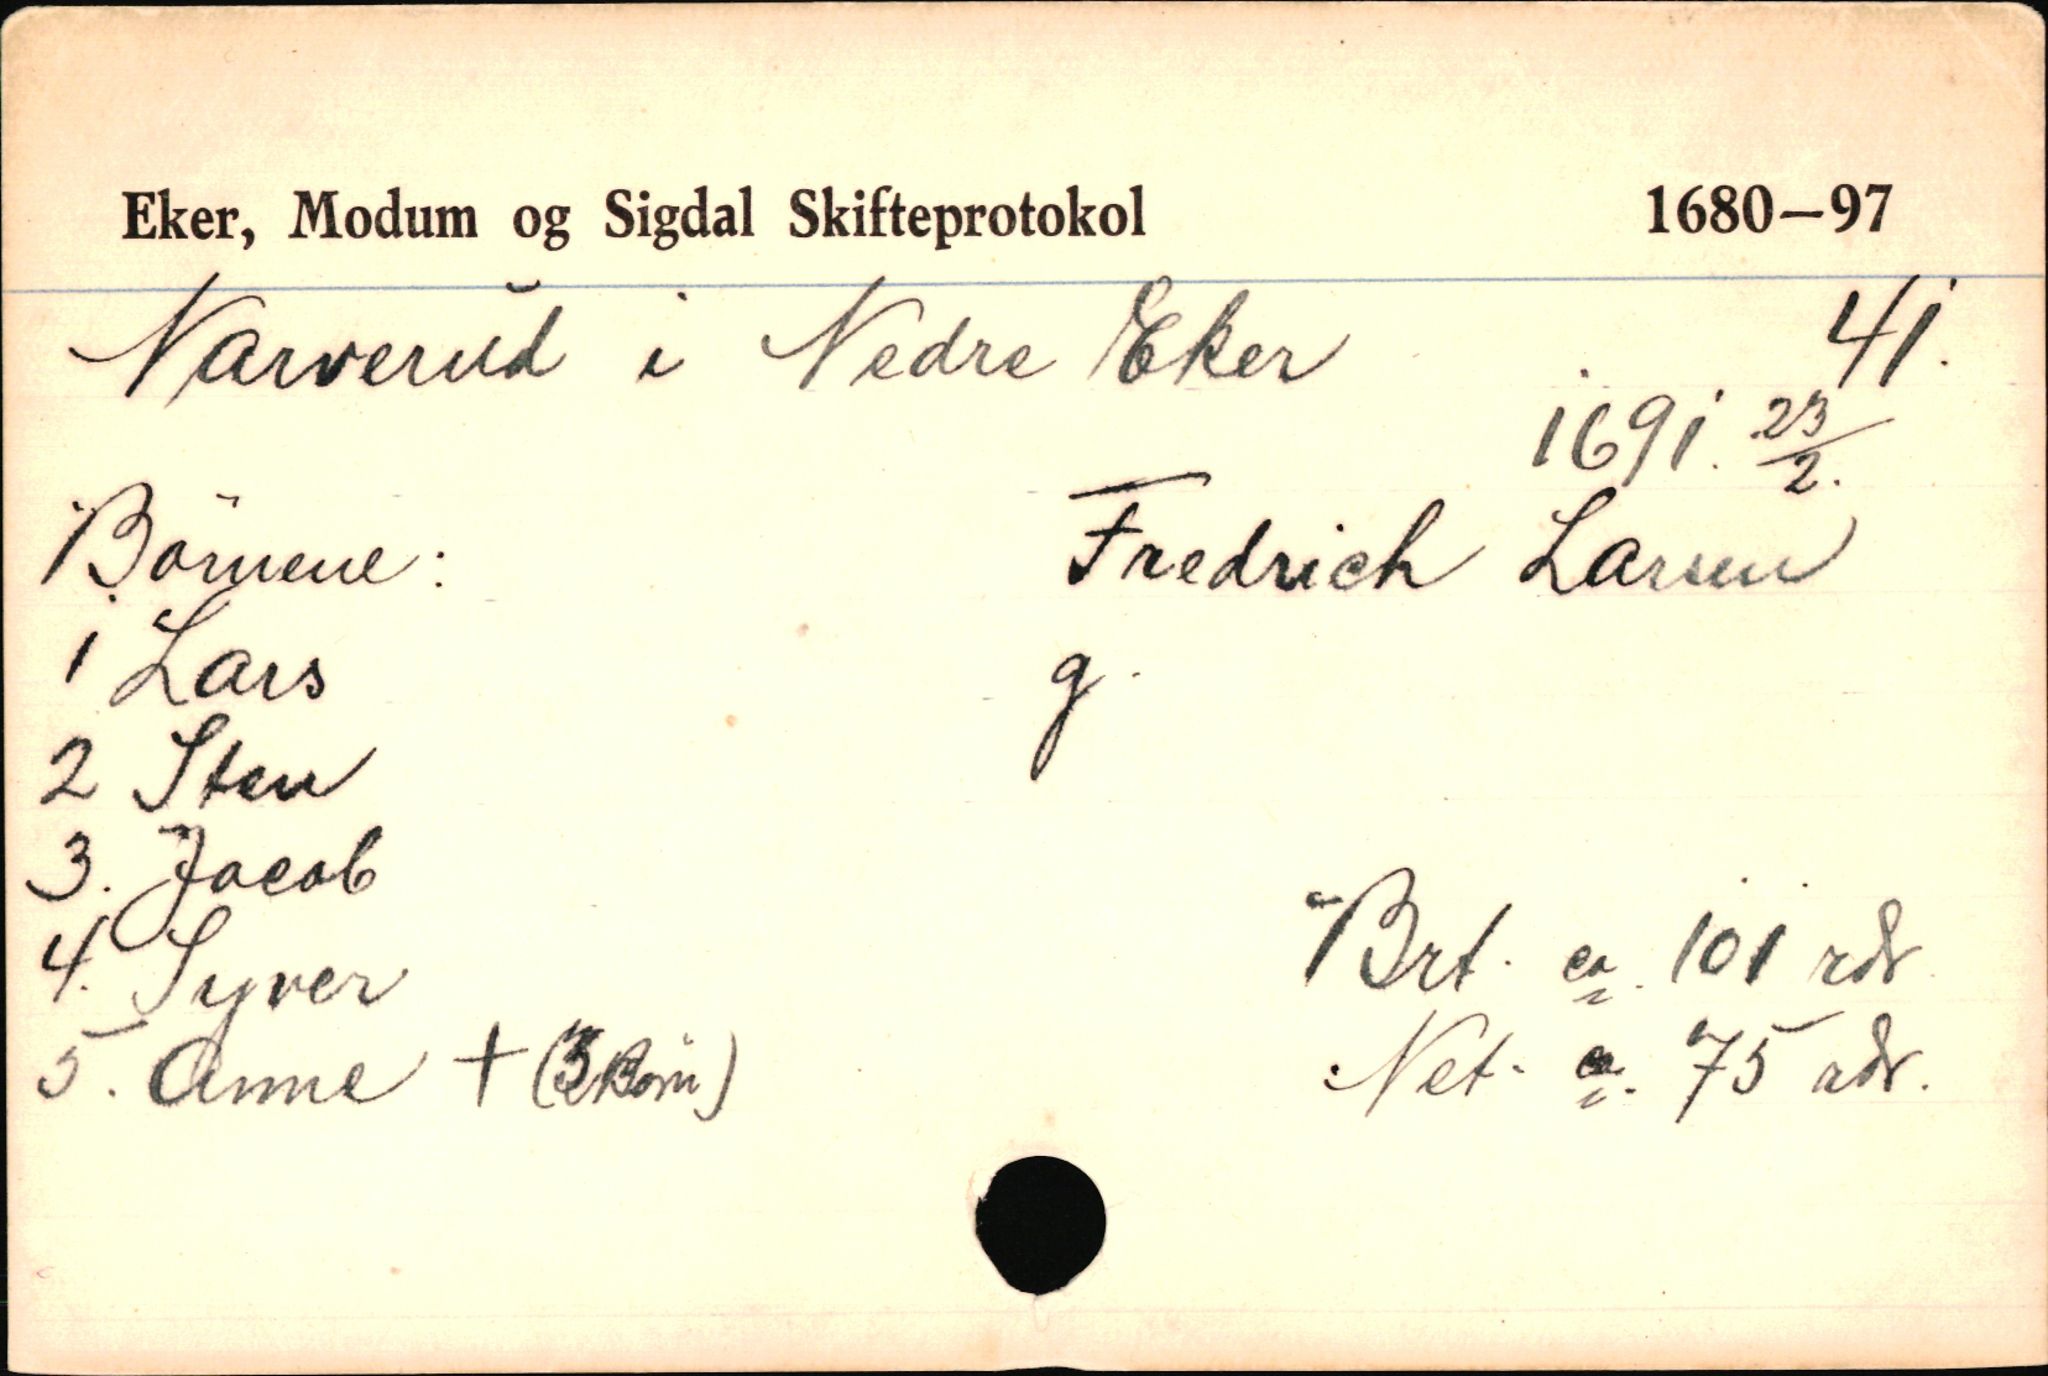 Eker, Modum og Sigdal Skifteprotokol 1680–97
Narverud i Nedre Eker 41.
1691. 23/2.
Börnene: Fredrich Larsen
1 Lars g.
2 Sten
3. Jacob
4. Syver Brt. ca. 101 rdr
5. Anne + (3 Börn) Net. ca. 75 rdr.